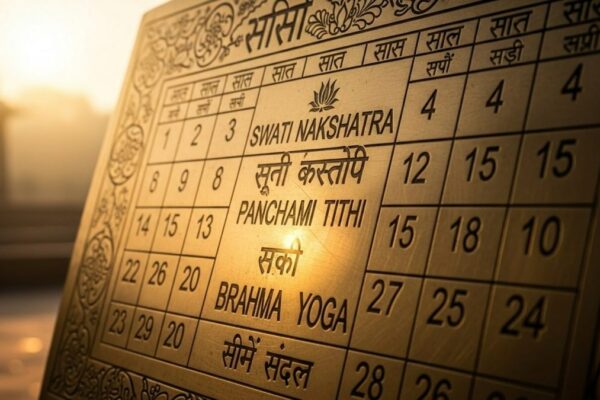 सात सात सात सास साल सात
सपौं सडी
1 2 3 4 4 4
SWATI NAKSHATRA
8 9 8 12 15 15
सूती कस्तोपि
PANCHAMI TITHI
14 15 13 15 18 10
सकी
22 26 20 27 25 24
BRAHMA YOGA
23 29 20 28 26
सीमें संदल